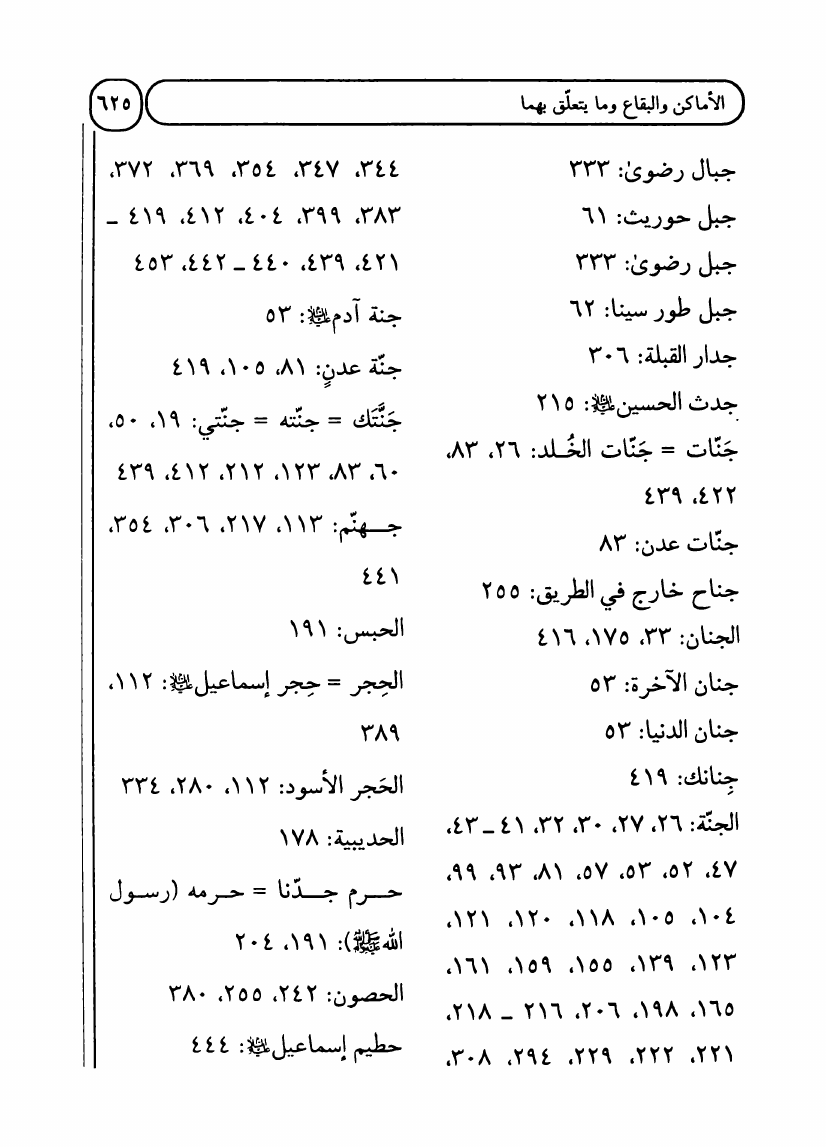 الأماكن والبقاع وما يتعلّق بهما
٦٢٥
جبال رضوىٰ: ٣٣٣
جبل حوريث: ٦١
جبل رضوىٰ: ٣٣٣
جبل طور سينا: ٦٢
جدار القبلة: ٣٠٦
جدث الحسين عليه السلام: ٢١٥
جَنّات = جَنّات الخُـلد: ٢٦، ٨٣،
٤٢٢، ٤٣٩
جنّات عدن: ٨٣
جناح خارج في الطريق: ٢٥٥
الجنان: ٣٣، ١٧٥، ٤١٦
جنان الآخرة: ٥٣
جنان الدنيا: ٥٣
جِنانك: ٤١٩
الجنّة: ٢٦، ٢٧، ٣٠، ٣٢، ٤١ ـ ٤٣،
٤٧، ٥٢، ٥٣، ٥٧، ٨١، ٩٣، ٩٩،
١٠٤، ١٠٥، ١١٨، ١٢٠، ١٢١،
١٢٣، ١٣٩، ١٥٥، ١٥٩، ١٦١،
١٦٥، ١٩٨، ٢٠٦، ٢١٦ ـ ٢١٨،
٢٢١، ٢٢٢، ٢٢٩، ٢٩٤، ٣٠٨،
٣٤٤، ٣٤٧، ٣٥٤، ٣٦٩، ٣٧٢،
٣٨٣، ٣٩٩، ٤٠٤، ٤١٢، ٤١٩ ـ
٤٢١، ٤٣٩، ٤٤٠ ـ ٤٤٢، ٤٥٣
جنة آدم عليه السلام: ٥٣
جنّة عدنٍ: ٨١، ١٠٥، ٤١٩
جَنَّتَك = جنّته = جنّتي: ١٩، ٥٠،
٦٠، ٨٣، ١٢٣، ٢١٢، ٤١٢، ٤٣٩
جـــهنّم: ١١٣، ٢١٧، ٣٠٦، ٣٥٤،
٤٤١
الحبس: ١٩١
الحِجر = حِجر إسماعيل عليه السلام: ١١٢،
٣٨٩
الحَجر الأسود: ١١٢، ٢٨٠، ٣٣٤
الحديبية: ١٧٨
حـــرم جـــدّنا = حـرمه (رسـول
الله ﷺ): ١٩١، ٢٠٤
الحصون: ٢٤٢، ٢٥٥، ٣٨٠
حطيم إسماعيل عليه السلام: ٤٤٤